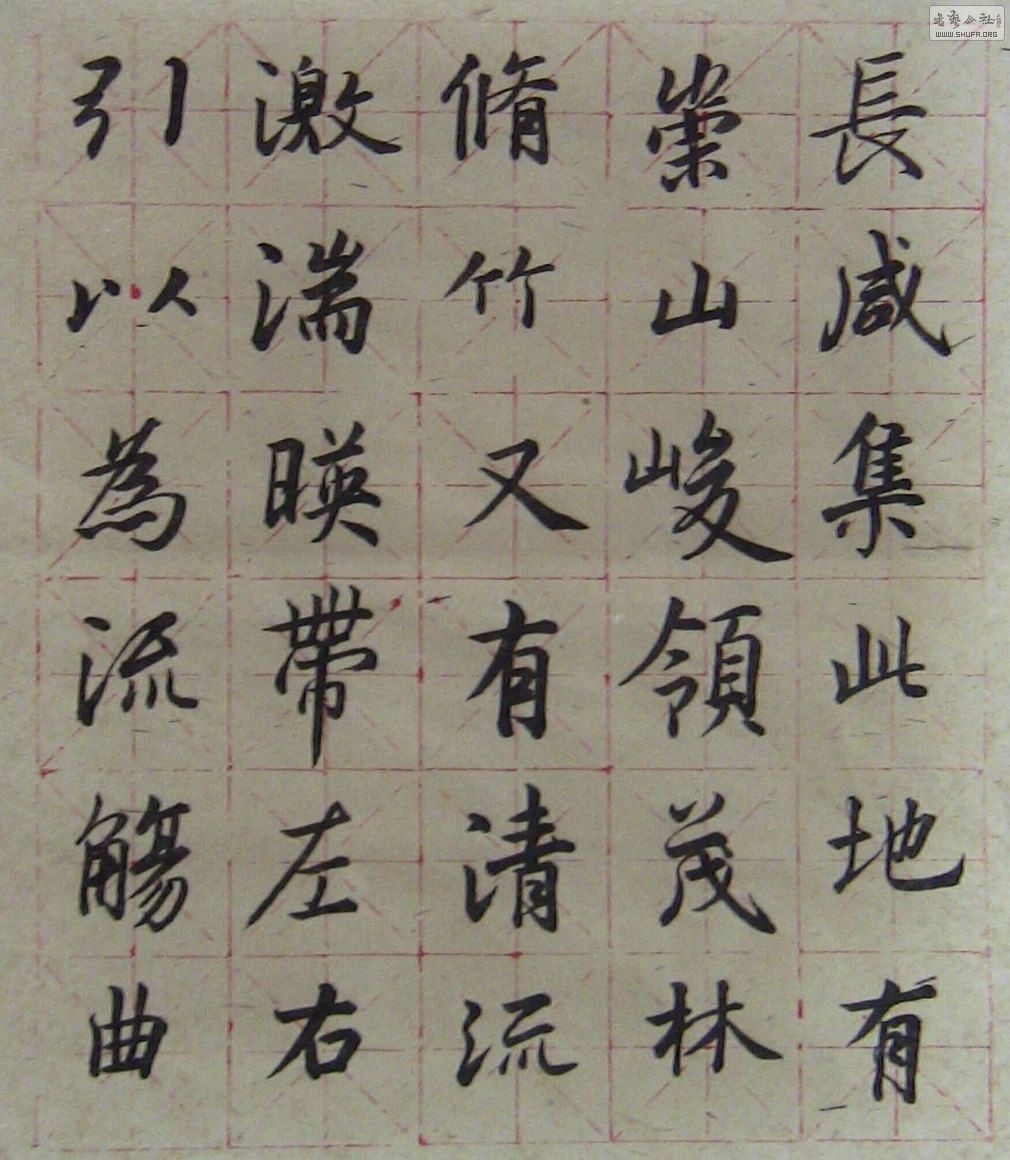 長咸集此地有
崇山峻領茂林
脩竹又有清流
激湍暎帶左右
引以為流觴曲
书艺公社
WWW.SHUFA.ORG